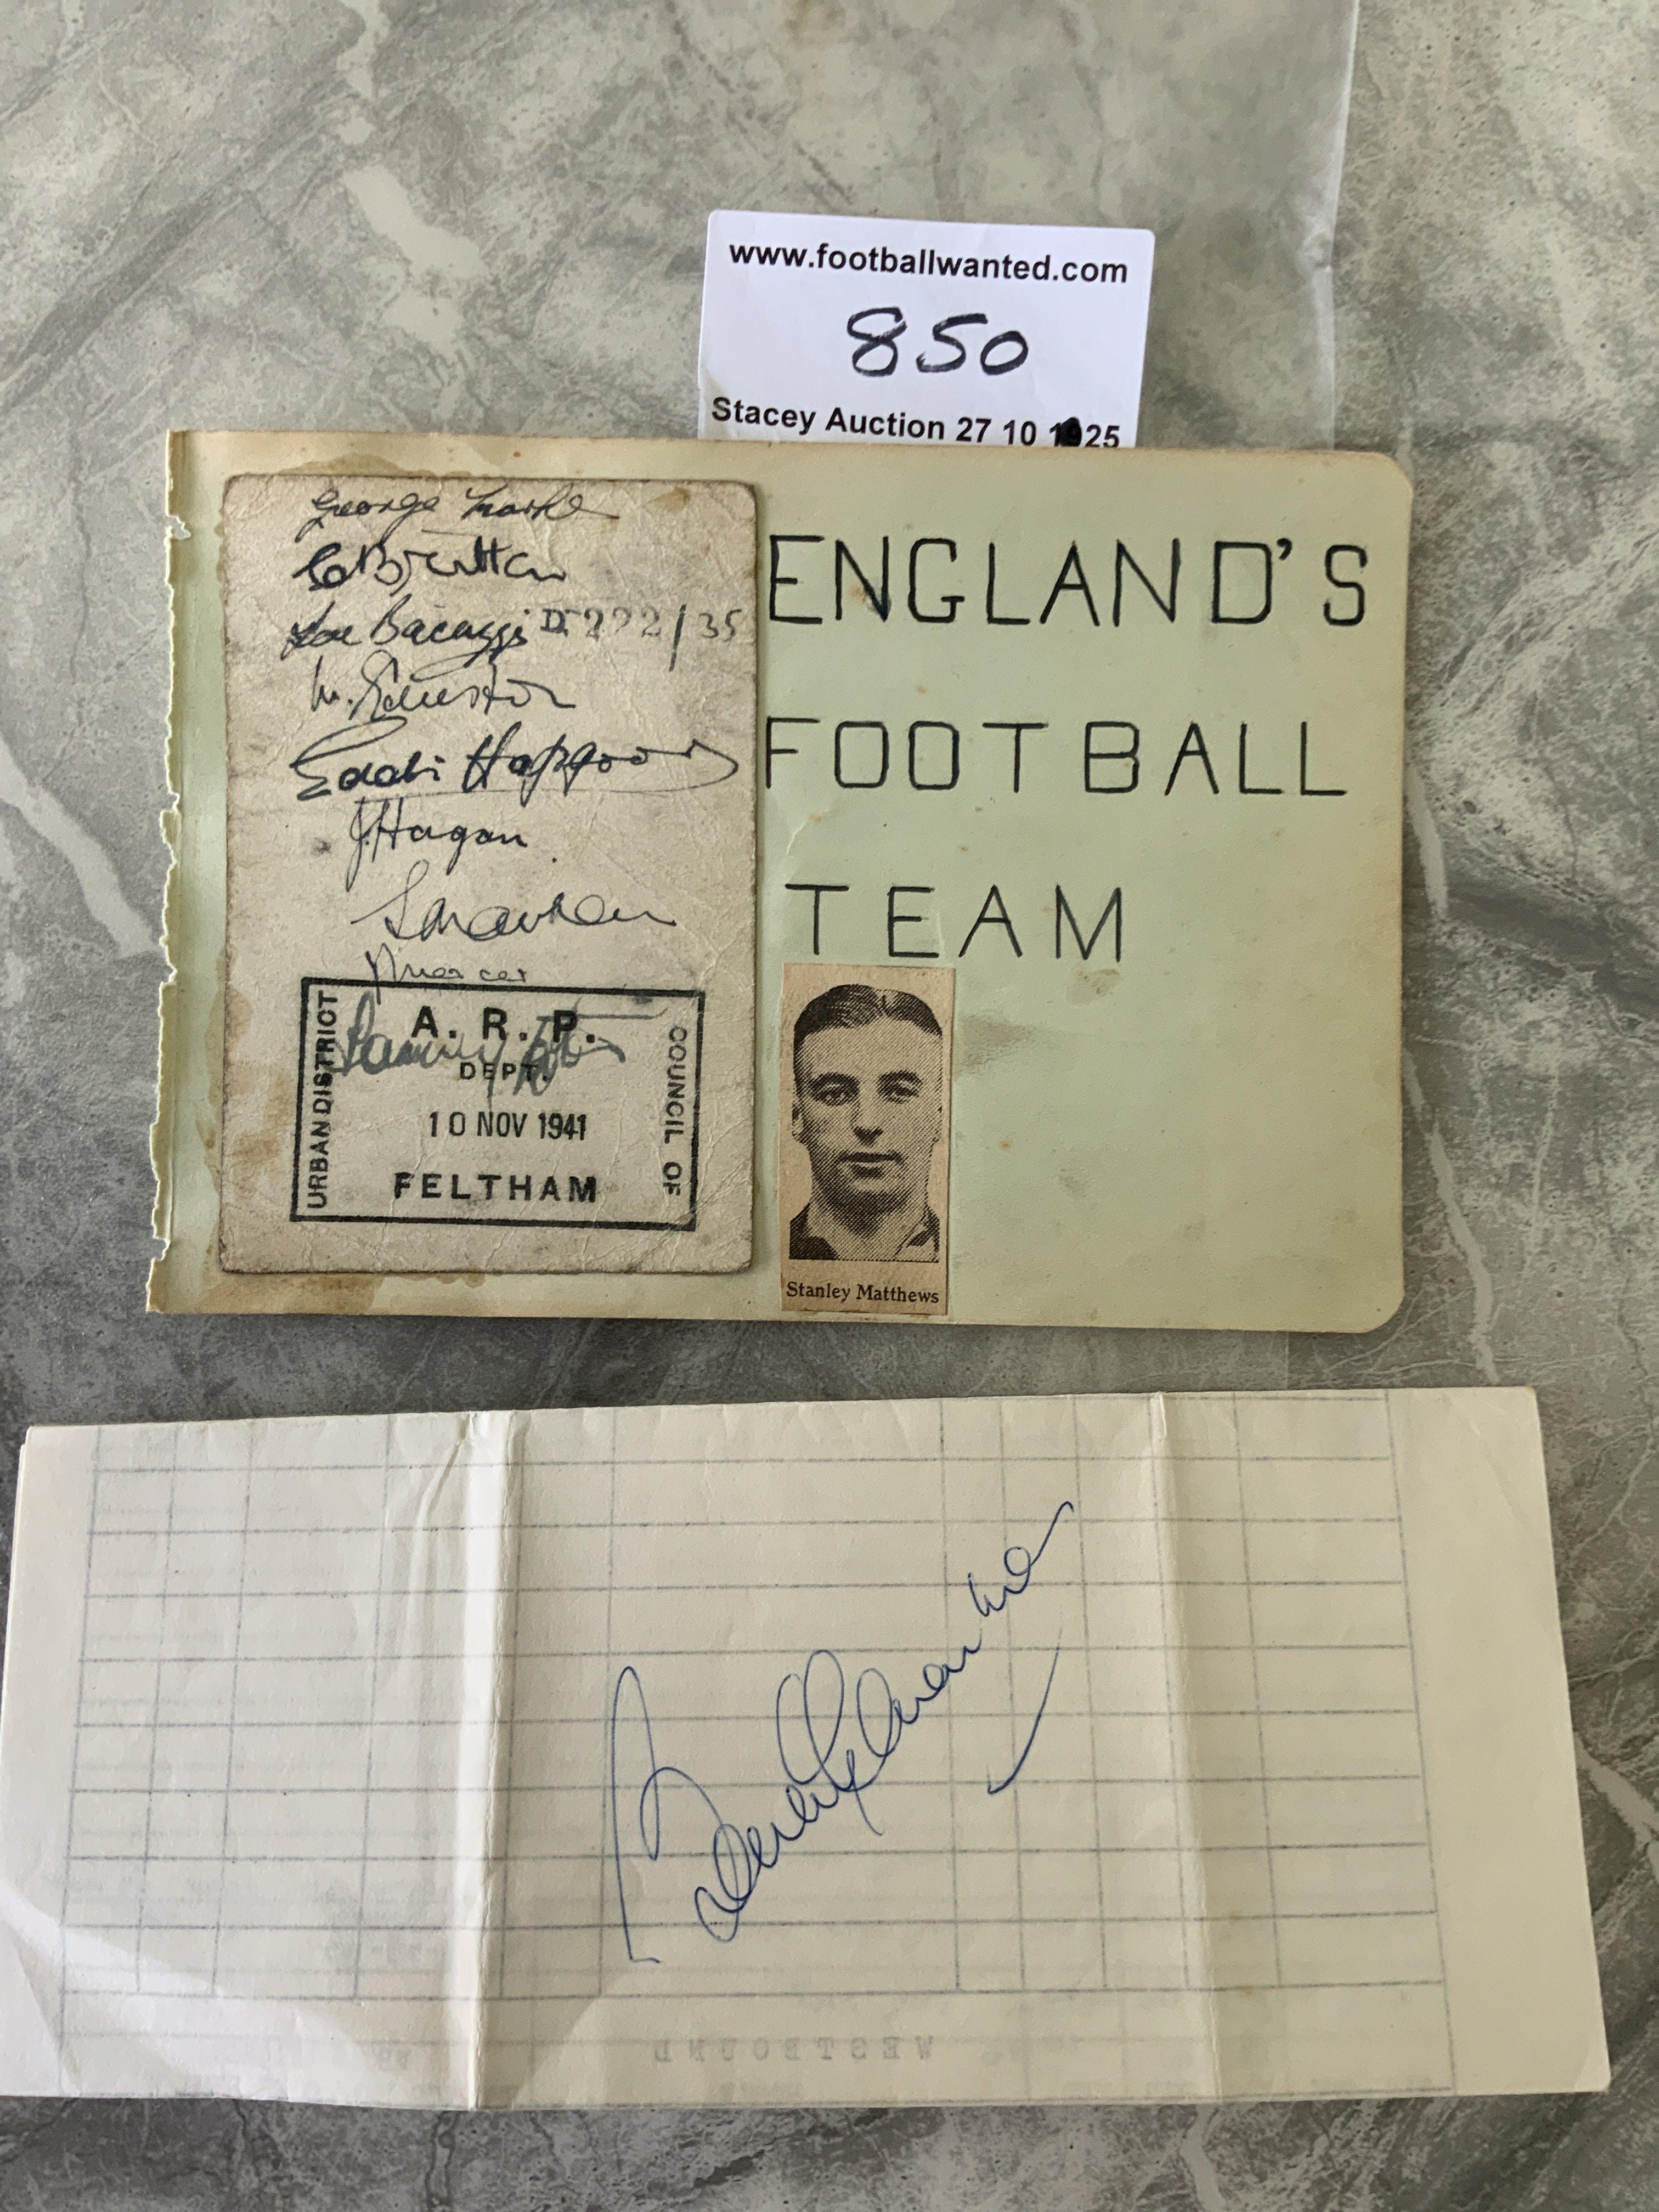 www.footballwanted.com
850
Stacey Auction 27 10 1925
George Marks
C Britton
Joe Bacuzzi D 222/35
Eddie Hapgood
J. Hagan
J Mercer
A. R. P.
DEPT.
10 NOV 1941
FELTHAM
URBAN DISTRICT
COUNCIL OF
ENGLAND'S
FOOTBALL
TEAM
Stanley Matthews
WESTBOUND